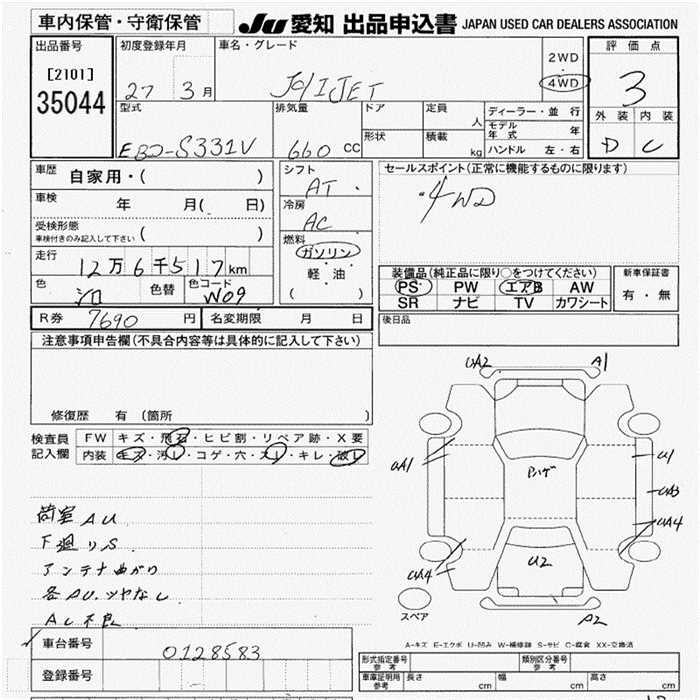 車内保管・守衛保管
JU 愛知 出品申込書 JAPAN USED CAR DEALERS ASSOCIATION
出品番号
[2101]
35044
初度登録年月
27 3月
車名・グレード
2WD
・
4WD
評価点
3
外装 内装
D C
型式
EBD-S331V
排気量
660 cc
ドア
定員
人
形状
積載
kg
ディーラー・並行
モデル年式 年
ハンドル 左・右
車歴
自家用・( )
車検
年 月( 日)
受検形態
車検付きのみ記入して下さい ( )
走行
12万6千517km
色
シロ
色替
色コード
W09
シフト
AT・
冷房
AC
燃料
ガソリン
軽・油
( )
セールスポイント(正常に機能するものに限ります)
4WD
装備品(純正品に限り○をつけてください)
PS・ PW エアB AW
SR ナビ TV カワシート
新車保証書
有・無
R券 7690 円
名変期限 月 日
後日品
注意事項申告欄(不具合内容等は具体的に記入して下さい)
修復歴 有(箇所 )
検査員記入欄
FW キズ・飛石・ヒビ割・リペア跡・X要
内装 キズ・汚レ・コゲ・穴・スレ・キレ・破レ
荷室AU
下廻りS
アンテナ曲がり
各AU.ツヤなし
AC不良
UA2 A1
UA1
U1
UA3
UA4
UA4
U2
A2
スペア
A-キズ E-エクボ U-凹み W-補修跡 S-サビ C-腐食 XX-交換済
車台番号 0128583
登録番号
形式指定番号 参考
類別区分番号 参考
車庫証明用 参考
長さ cm
幅 cm
高さ cm